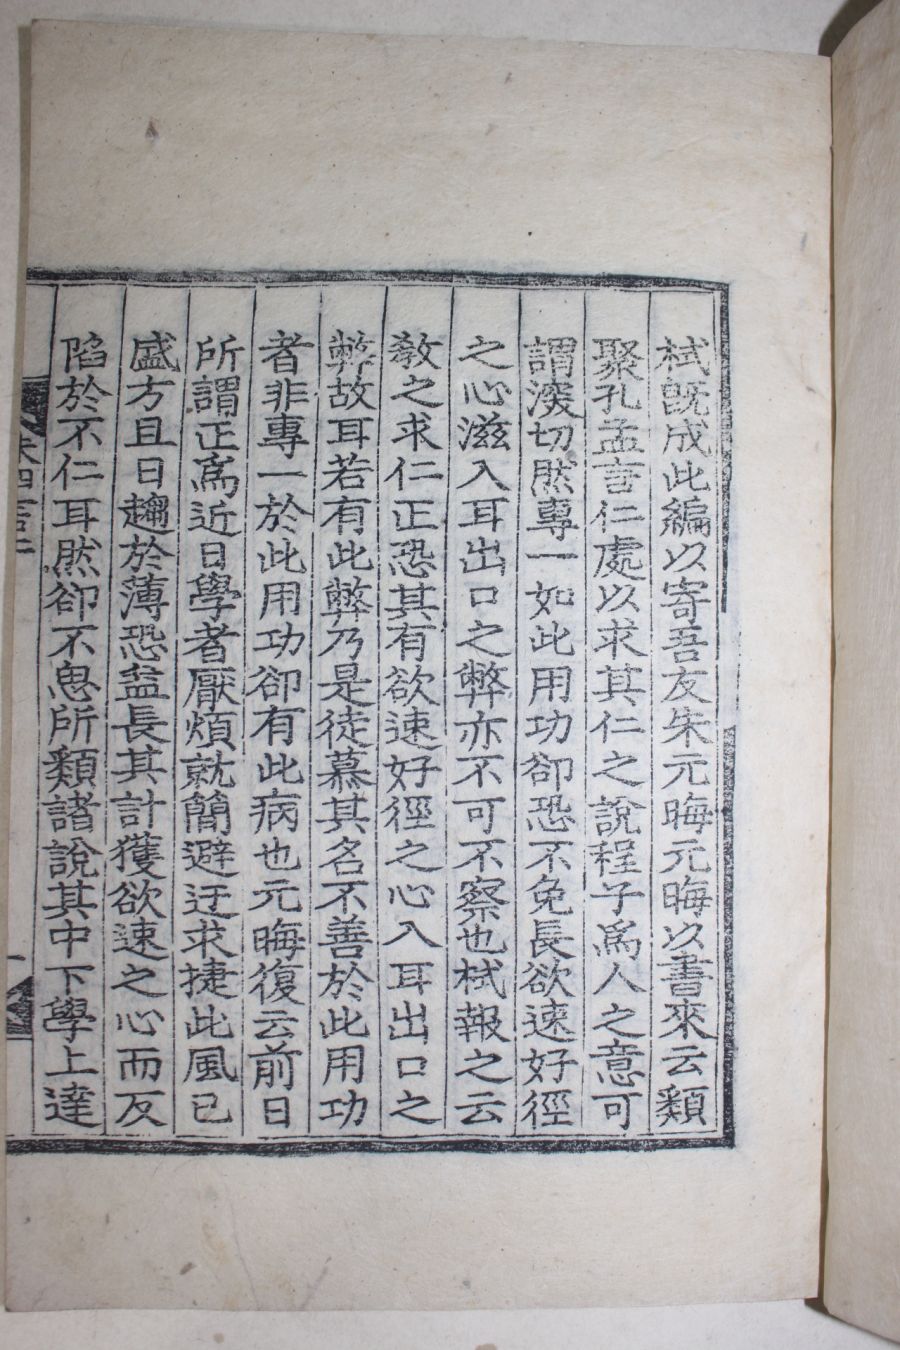 栻旣成此編以寄吾友朱元晦元晦以書來云類
聚孔孟言仁處以求其仁之說程子爲人之意可
謂深切然專一如此用功卻恐不免長欲速好徑
之心滋入耳出口之弊亦不可不察也栻報之云
敎之求仁正恐其有欲速好徑之心入耳出口之
弊故耳若有此弊乃是徒慕其名不善於此用功
者非專一於此用功卻有此病也元晦復云前日
所謂正爲近日學者厭煩就簡避迂求捷此風已
盛方且日趨於薄恐益長其計獲欲速之心而反
陷於不仁耳然卻不思所類諸說其中下學上達